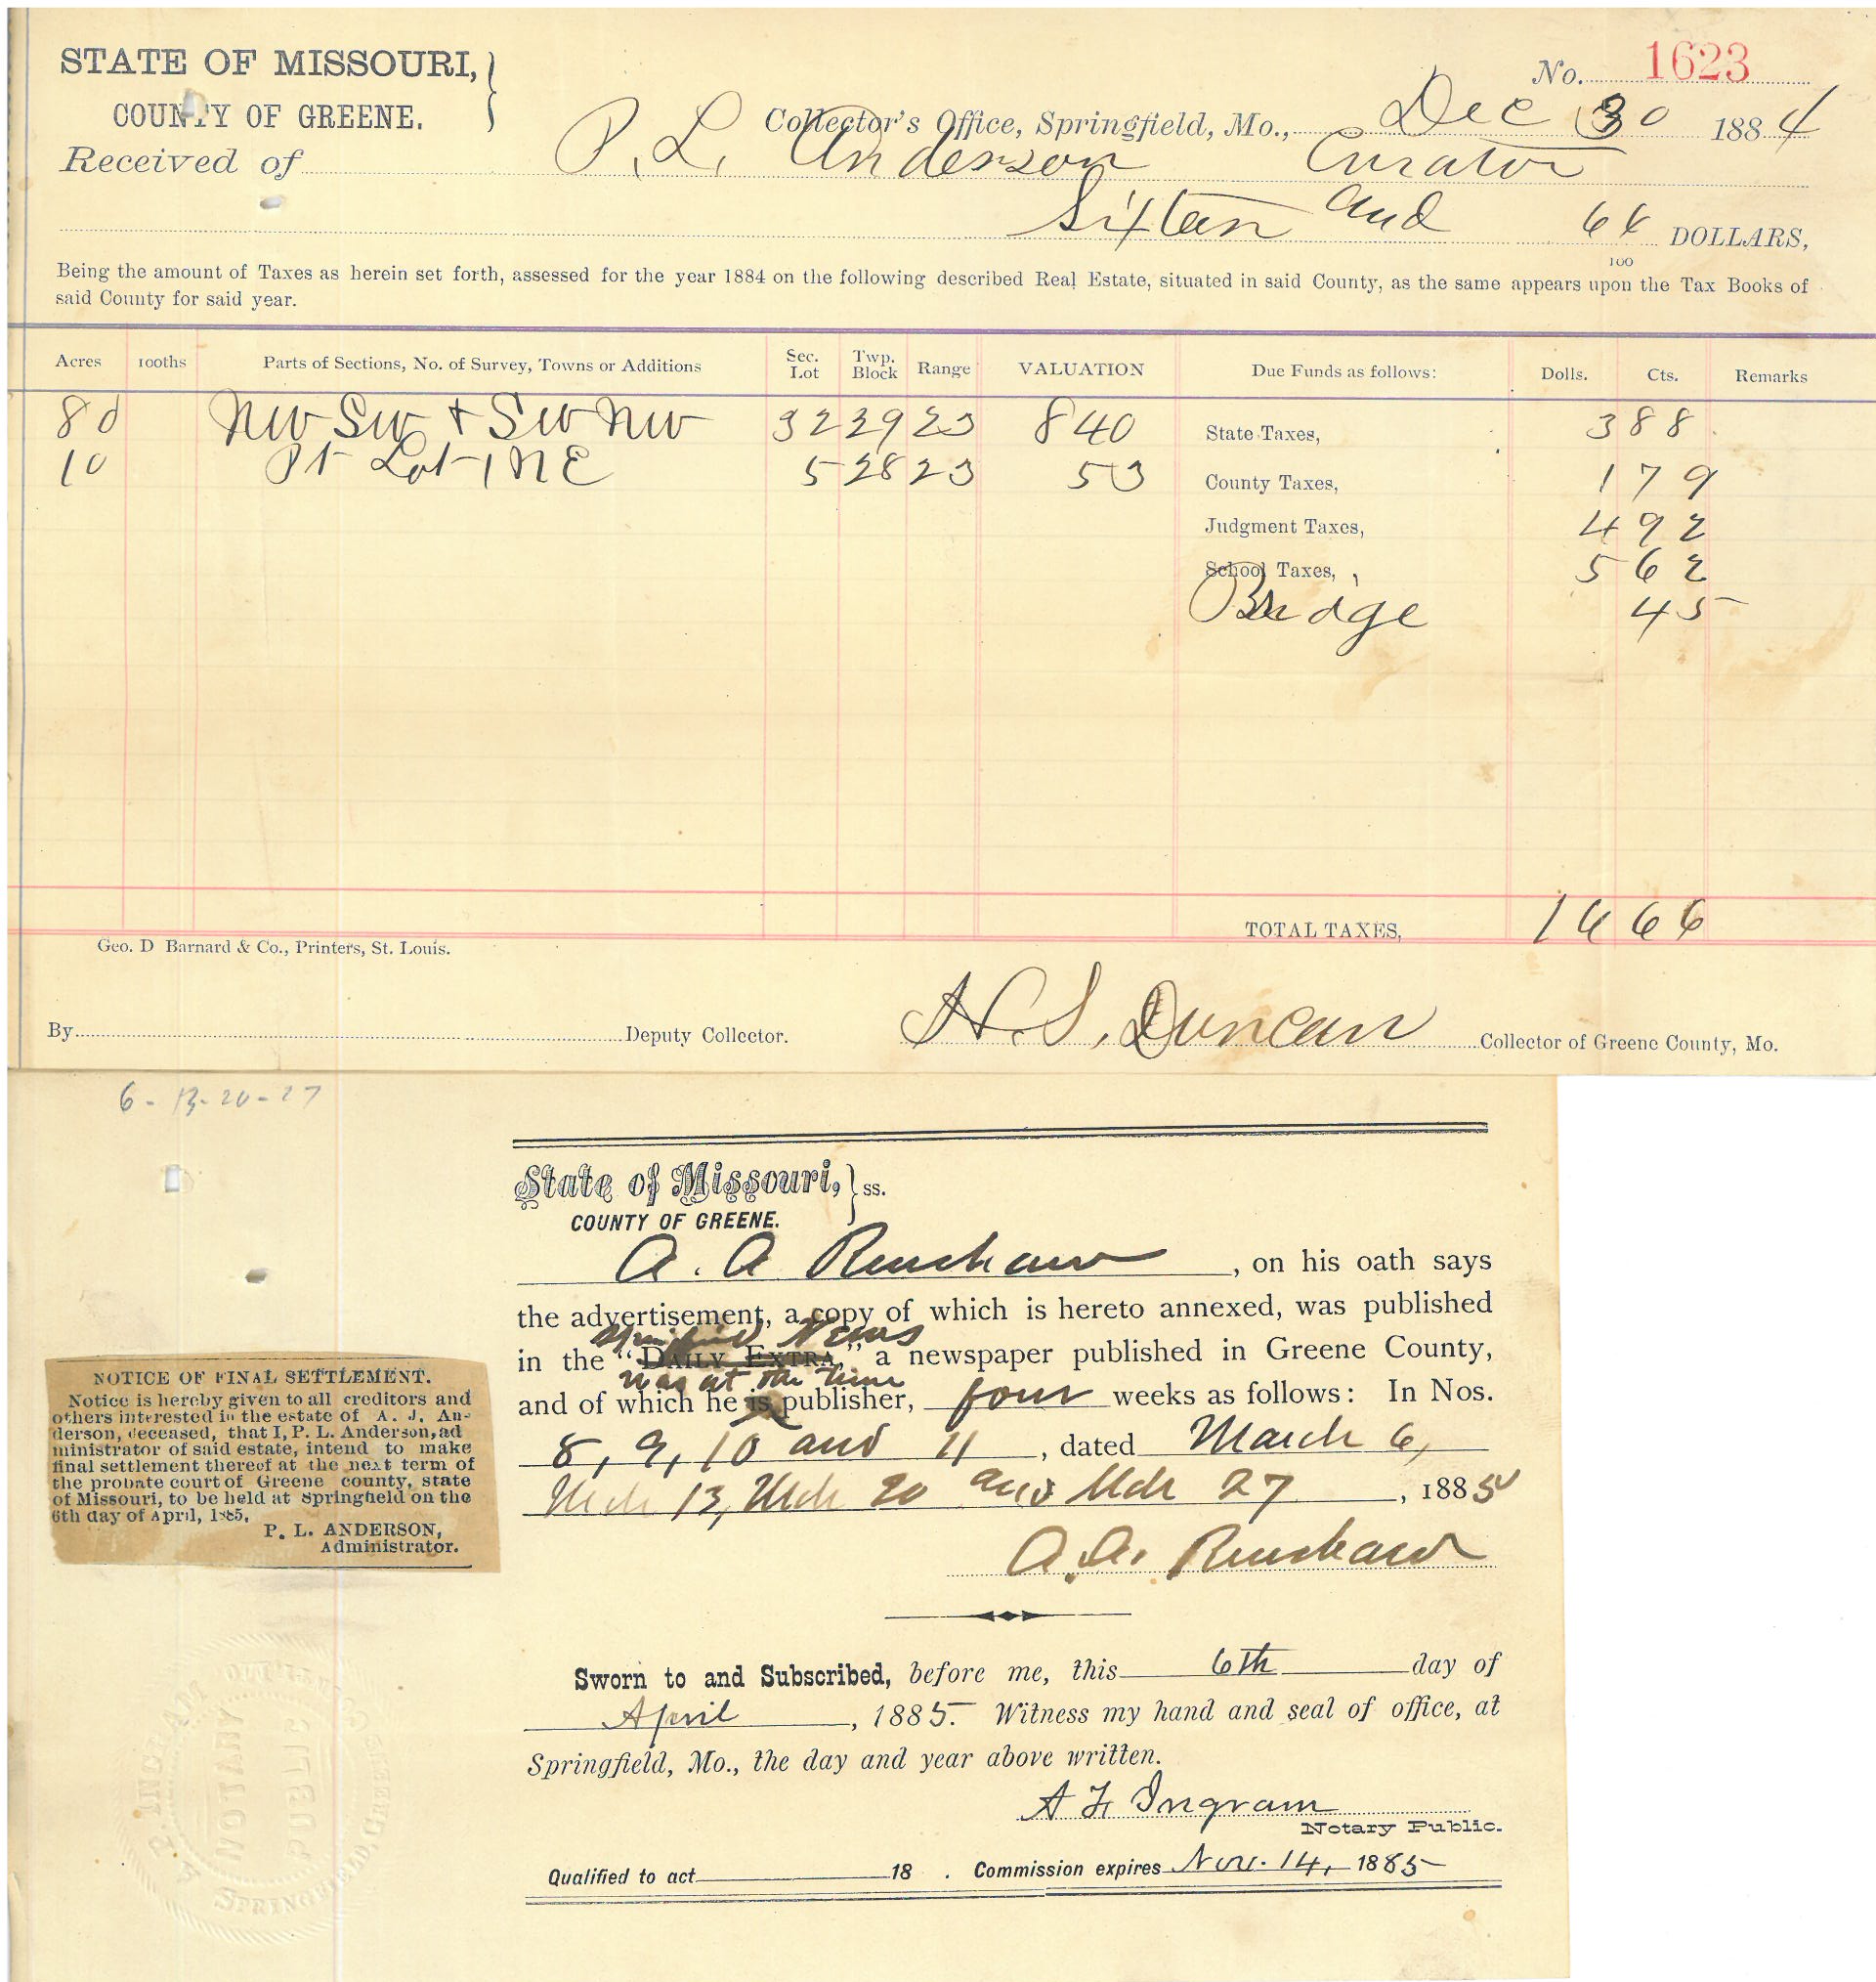 STATE OF MISSOURI,
COUNTY OF GREENE.
No. 1623
Collector's Office, Springfield, Mo., Dec 30 1884
Received of P. L. Anderson Curator
Sixteen and 66/100 DOLLARS,
Being the amount of Taxes as herein set forth, assessed for the year 1884 on the following described Real Estate, situated in said County, as the same appears upon the Tax Books of
said County for said year.
Acres 100ths Parts of Sections, No. of Survey, Towns or Additions Sec. Lot Twp. Block Range VALUATION Due Funds as follows: Dolls. Cts. Remarks
80 NW SW + SW NW 32 29 23 840 State Taxes, 3 88
10 Pt Lot 1 NE 5 28 23 53 County Taxes, 1 79
Judgment Taxes, 4 92
School Taxes, 5 62
Bridge 45
TOTAL TAXES, 16 66
Geo. D Barnard & Co., Printers, St. Louis.
By Deputy Collector. H. S. Duncan Collector of Greene County, Mo.
6-13-20-27
State of Missouri, ss.
COUNTY OF GREENE.
A. A Renshaw, on his oath says
the advertisement, a copy of which is hereto annexed, was published
Springfield News
in the "DAILY EXTRA," a newspaper published in Greene County,
was at the time
and of which he is publisher, four weeks as follows: In Nos.
8, 9, 10 and 11, dated March 6,
Mch 13, Mch 20 and Mch 27, 1885
A. A. Renshaw
NOTICE OF FINAL SETTLEMENT.
Notice is hereby given to all creditors and
others interested in the estate of A. J. An-
derson, deceased, that I, P. L. Anderson, ad
ministrator of said estate, intend to make
final settlement thereof at the next term of
the probate court of Greene county, state
of Missouri, to be held at Springfield on the
6th day of April, 1885.
P. L. ANDERSON,
Administrator.
Sworn to and Subscribed, before me, this 6th day of
April, 1885. Witness my hand and seal of office, at
Springfield, Mo., the day and year above written.
A F Ingram
Notary Public.
Qualified to act 18 . Commission expires Nov. 14, 1885
NOTARY PUBLIC